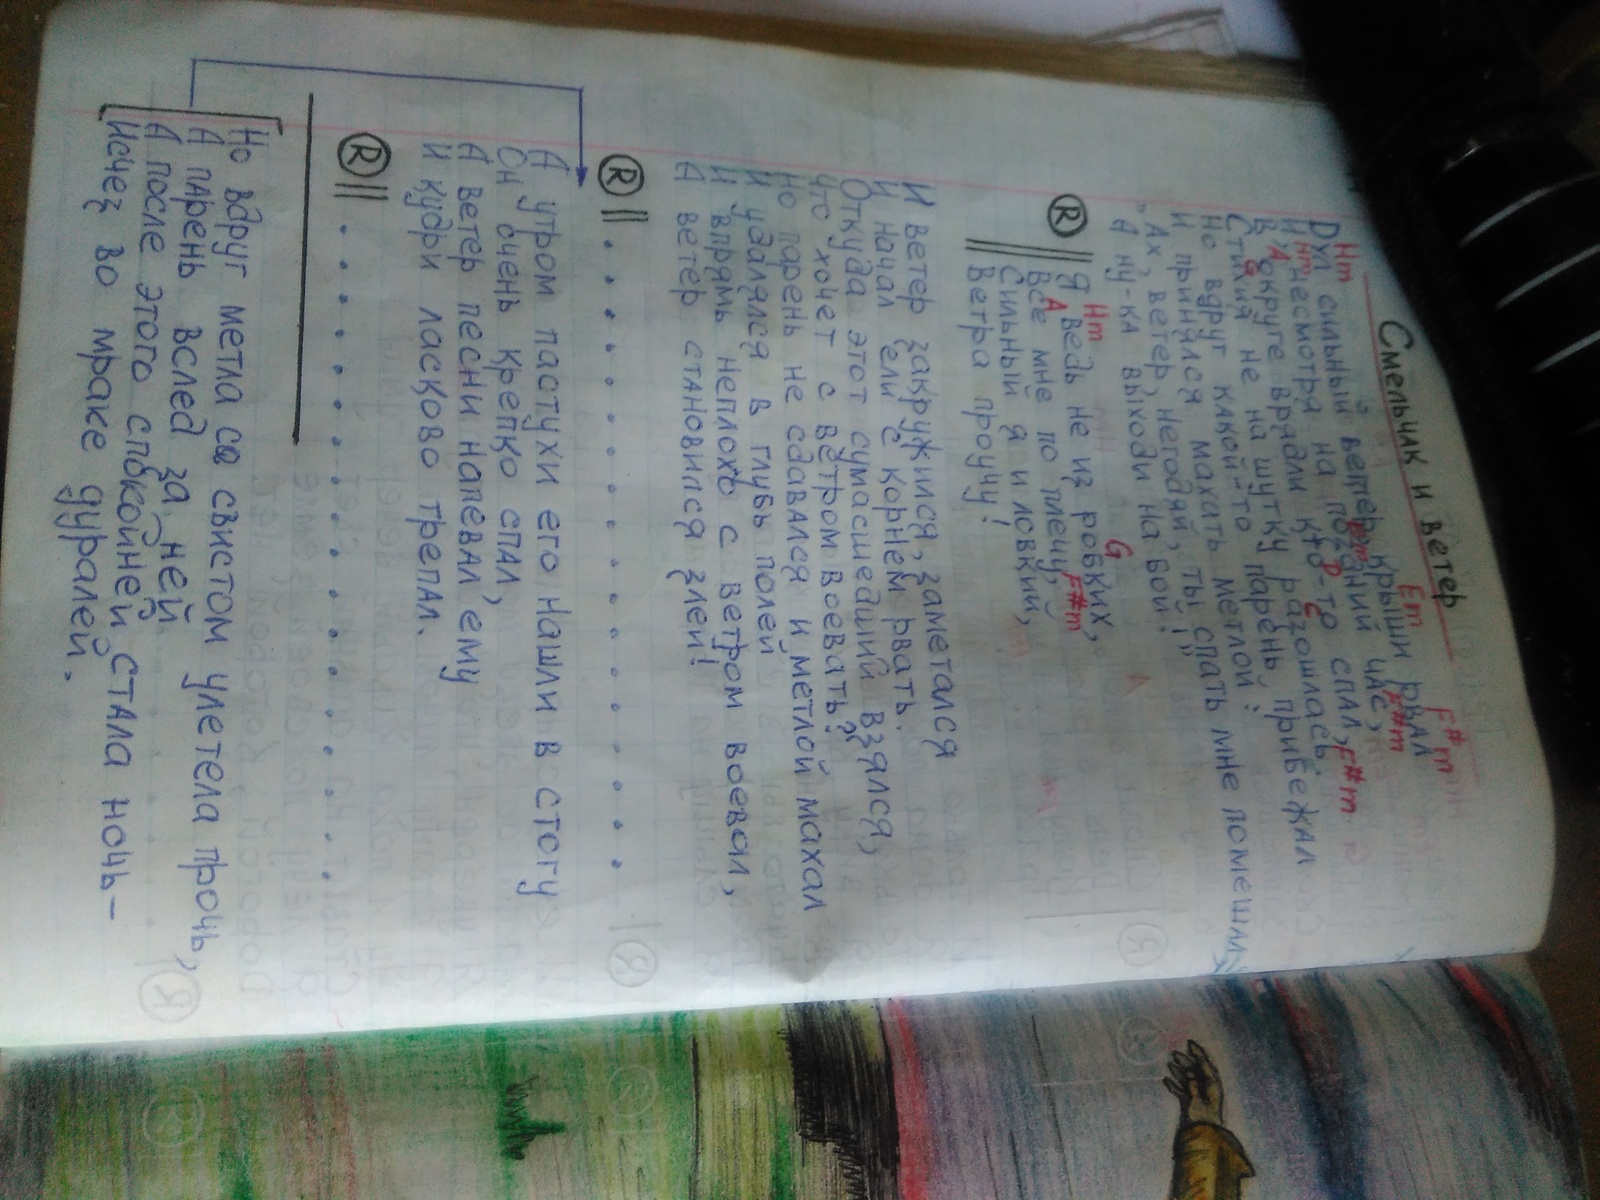 Смельчак и ветер
Hm Em F#m
Дул сильный ветер, крыши рвал
Hm Em F#m
И несмотря на поздний час,
A D F#m
В округе врядли кто-то спал,
G
Стихия не на шутку разошлась.
Но вдруг какой-то парень прибежал
И принялся махать метлой:
"Ах, ветер, негодяй, ты спать мне помешал,
А ну-ка выходи на бой!"
Hm G
R Я ведь не из робких,
A F#m
Всё мне по плечу,
Сильный я и ловкий,
Ветра проучу!
И ветер закружился, заметался
И начал ели с корнем рвать.
Откуда этот сумасшедший взялся,
Что хочет с ветром воевать?
Но парень не сдавался и метлой махал
И удалялся в глубь полей
И впрямь неплохо с ветром воевал,
А ветер становился злей!
R . . . . . . . . . . . .
А утром пастухи его нашли в стогу
Он очень крепко спал,
А ветер песни напевал ему
И кудри ласково трепал.
R . . . . . . . . . . . . . .
Но вдруг метла со свистом улетела прочь,
А парень вслед за ней
А после этого спокойней стала ночь –
Исчез во мраке дуралей.